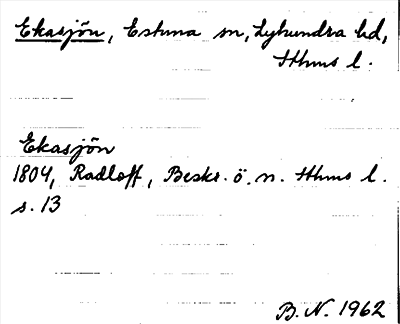 Ekasjön, Estuna sn, Lyhundra hd,
Sthms l.
Ekasjön
1804, Radloff, Beskr. ö. n. Sthms l.
s. 13
B. N. 1962